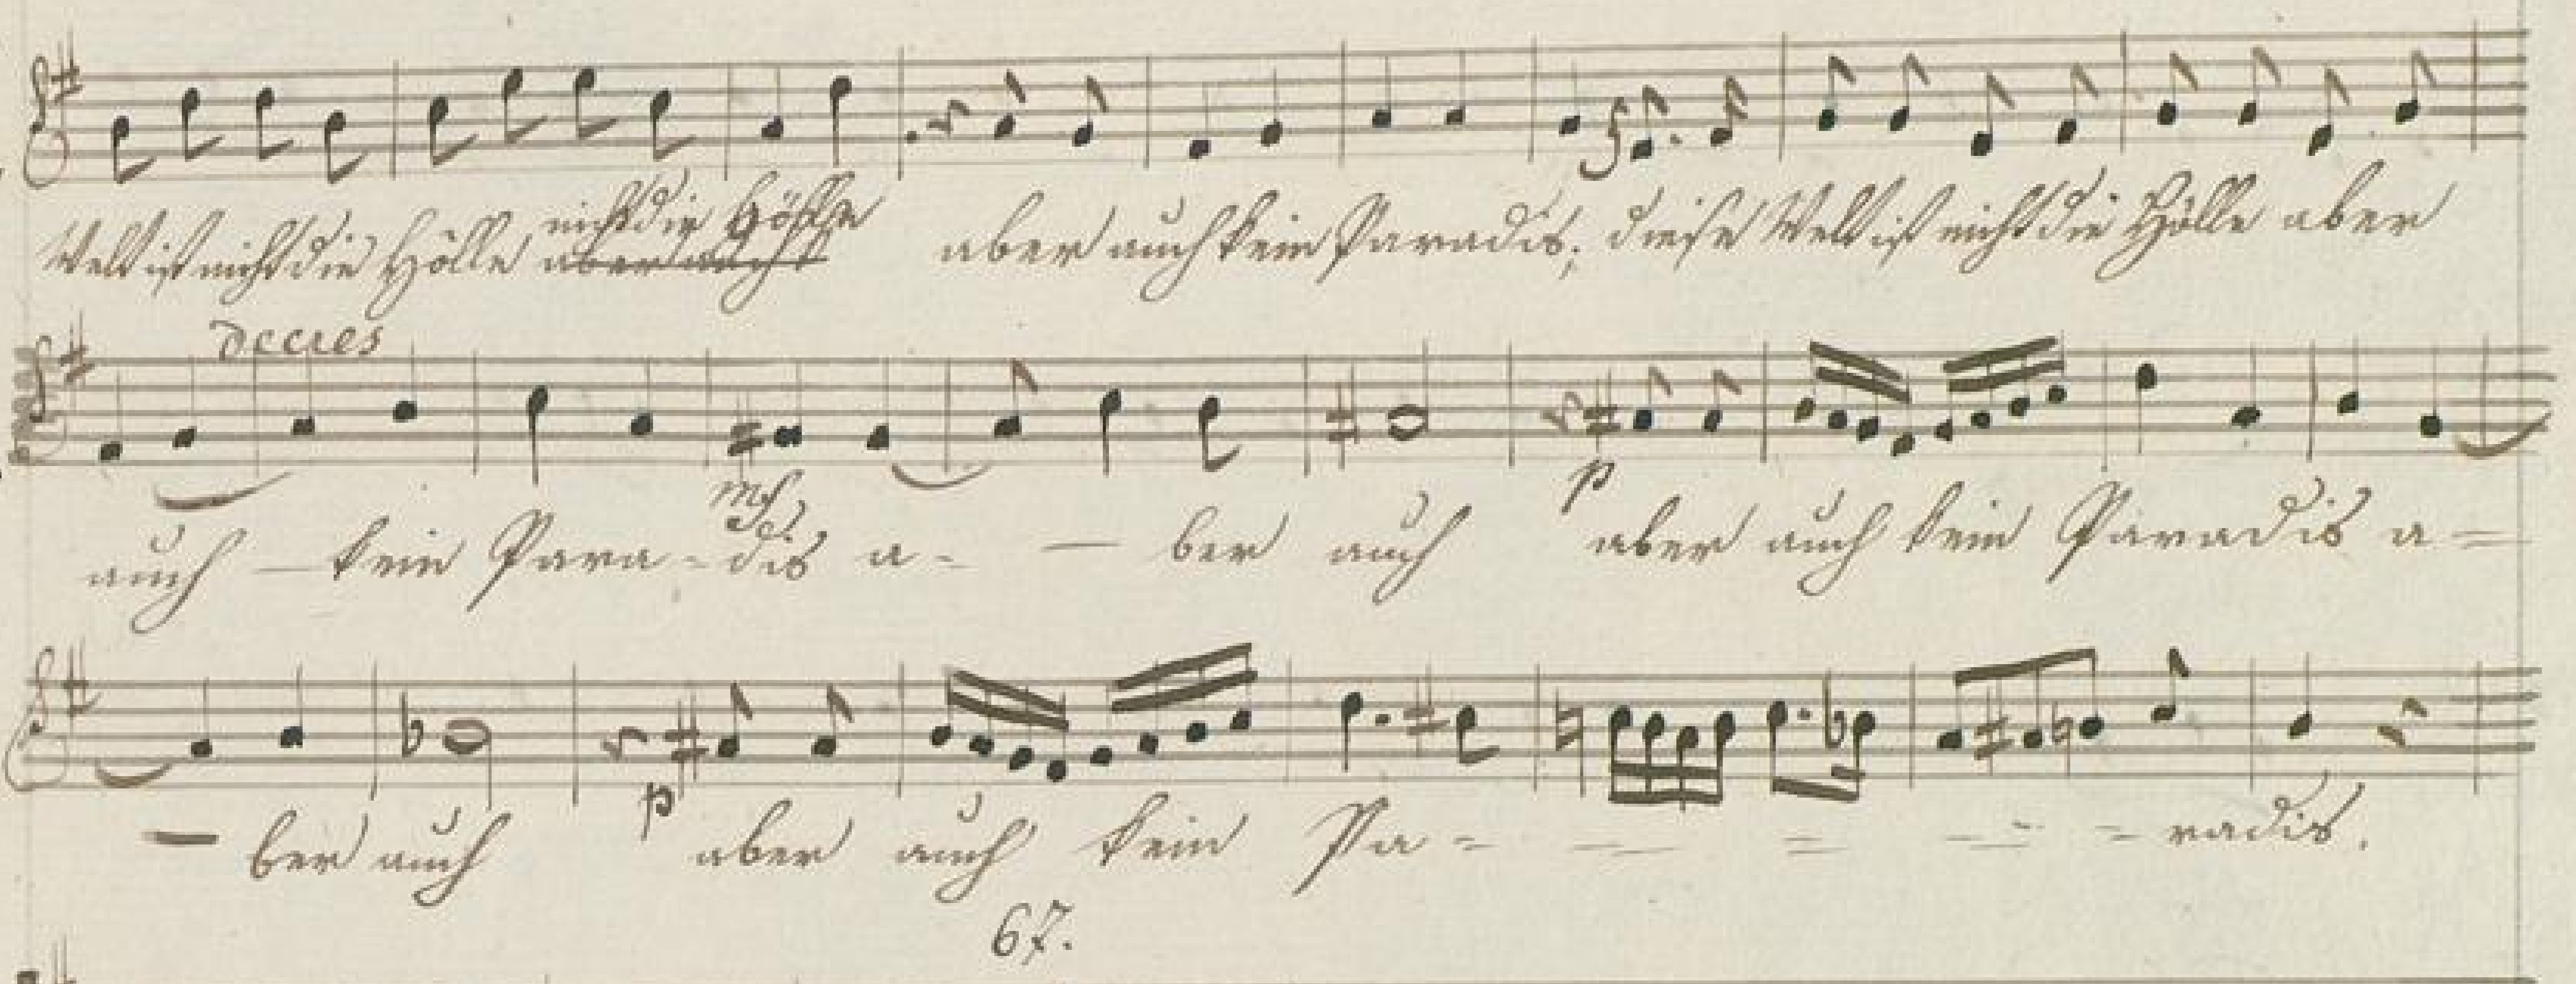 nicht die Hölle
Welt ist nicht die Hölle aber auch aber auch kein Paradis; diese Welt ist nicht die Hölle aber
decres
mf p
auch — kein Para - dis a - — ber auch aber auch kein Paradis a =
p
— ber auch aber auch kein Pa = = = = = radis.
67.